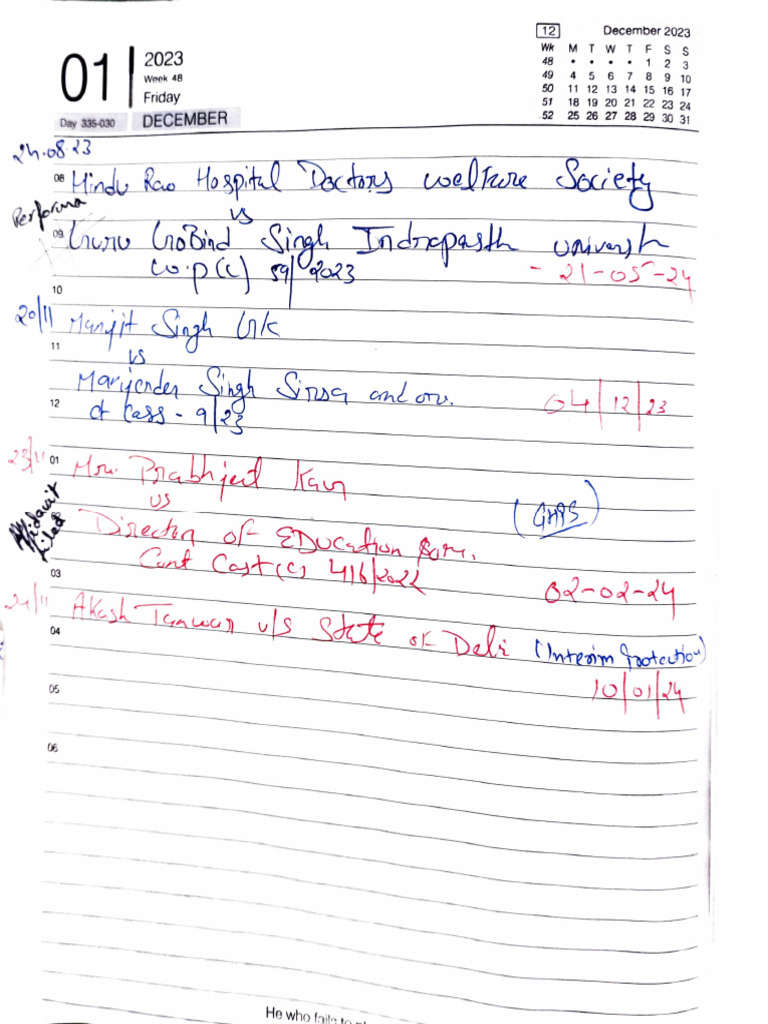 01
2023
Week 48
Friday
Day 335-030
DECEMBER
12 December 2023
Wk M T W T F S S
48 • • • • 1 2 3
49 4 5 6 7 8 9 10
50 11 12 13 14 15 16 17
51 18 19 20 21 22 23 24
52 25 26 27 28 29 30 31
24.08.23
08 Hindu Rao Hospital Doctors welfare Society
Performa
vs
09 Guru GoBind Singh Indrapasth universt
w.p(c) 59/2023 - 21-05-24
10
20/11 Manjit Singh GK
11
vs
Manjender Singh Sirsa and
12 ct Cass - 9/23 04/12/23
23/11 01 Prabhjeet Kaur
vs
(GHPS)
Affidavit
filed
Director of EDucation
Cont Cast(c) 416/2022
03 02-02-24
24/11 Akash Tanwar v/s State of Delhi (Interim protection)
04
05 10/01/24
06
He who fails to